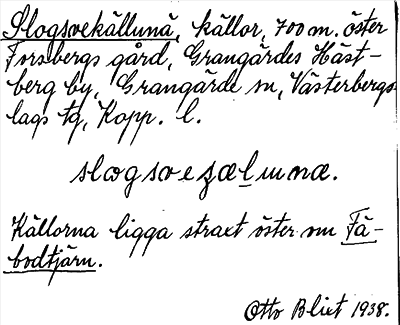 Slogsvekällunä, källor, 700 m. öster
Forsbergs gård, Grangärdes Häst-
berg by, Grangärde sn, Västerbergs-
lags tg, Kopp. l.
slogsvezæլunæ.
Källorna ligga straxt öster om Fä-
bodtjärn.
Otto Blixt 1938.